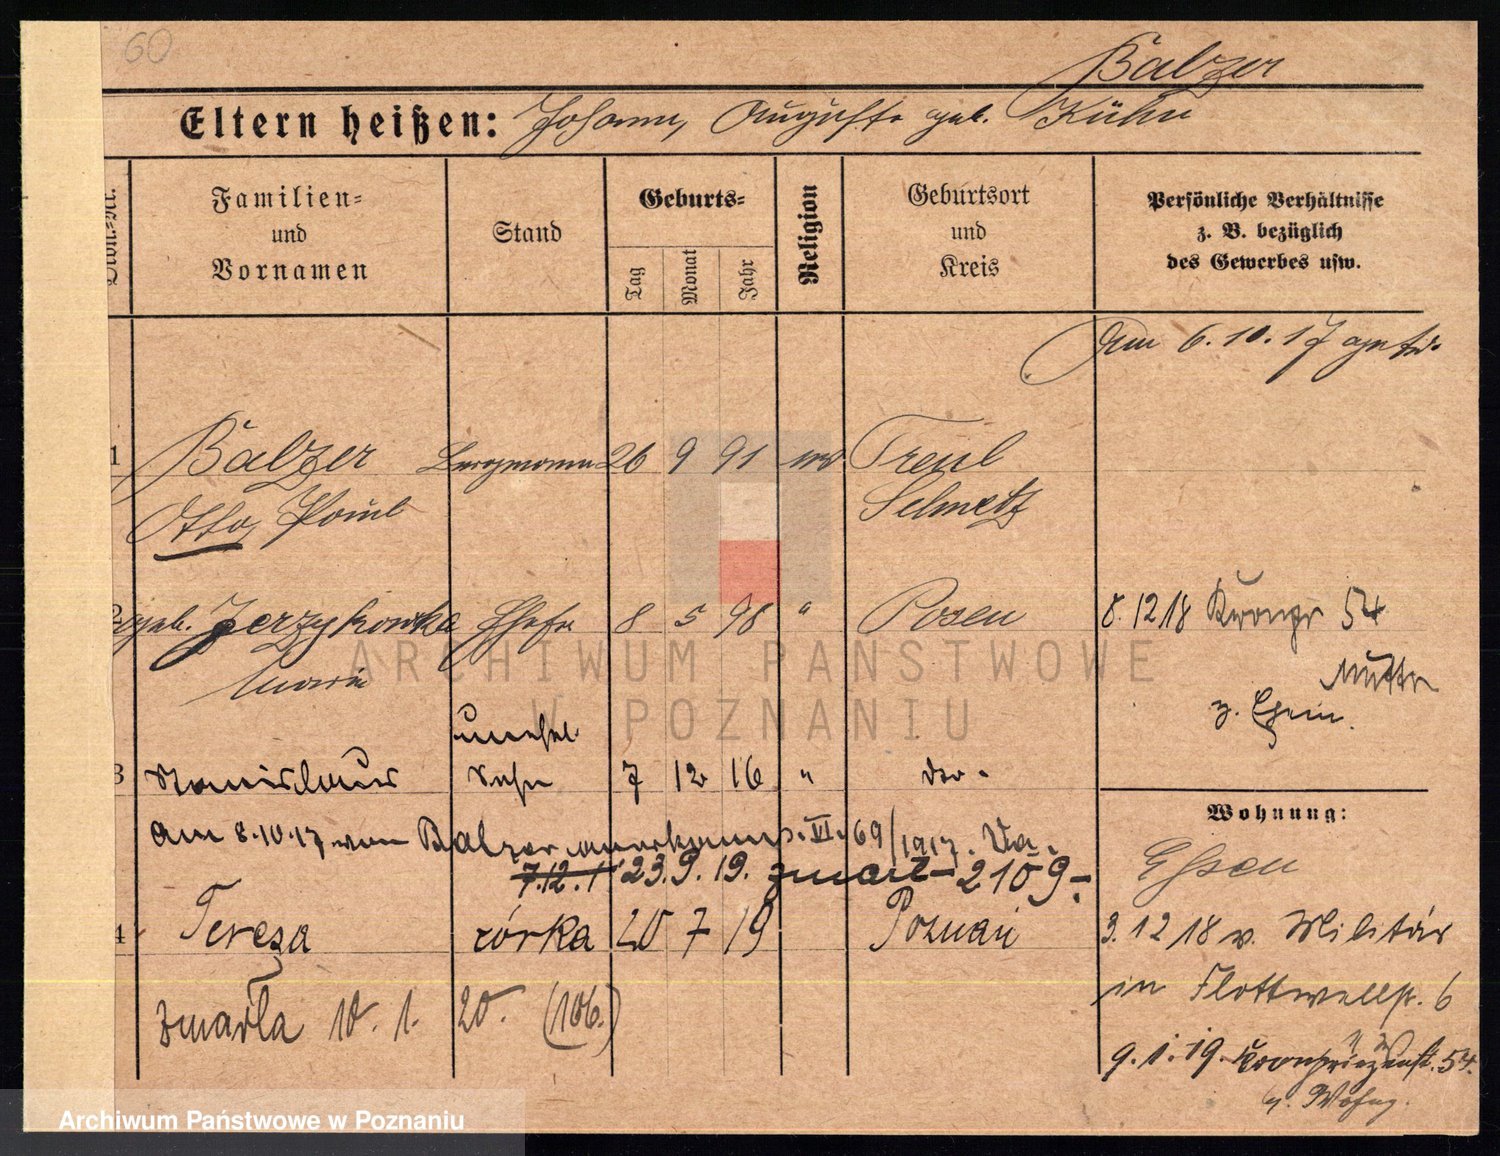 60
Balzer
Eltern heißen: Johann, Auguste geb. Kühn
Familien= und Vornamen
Stand
Geburts=
Tag
Monat
Jahr
Religion
Geburtsort und Kreis
Persönliche Verhältnisse z. B. bezüglich des Gewerbes usw.
Am 6.10.17
1 Balzer Bergmann 26 9 91 Treul
Otto, Paul Schwetz
2 geb. Jerzykowska Ehefr 8 5 98 " Posen 8.12 18 Kronpr 54
Maria Mutter
unehel.
3 Stanislaus Sohn 7 12 16 " do.
am 8.10.17 von Balzer anerkannt. VI. 69/1917.
7.12.1 23.9.19. zmarł - 2109 -
Wohnung:
Essen
4 Teresa córka 20 7 19 Poznań 3.12 18 v. Militär
zmarła 10. 1. 20. (106.) in Flottwellstr. 6
9.1.19. Kronprinzenst. 54.
z. Wohng.
ARCHIWUM PAŃSTWOWE
W POZNANIU
Archiwum Państwowe w Poznaniu